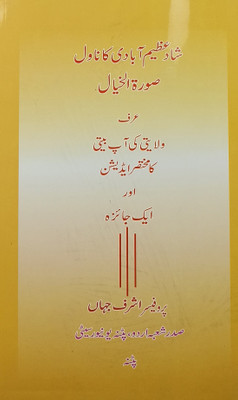 شاد عظیم آبادی کا ناول
صورۃ الخیال
عرف
ولایتی کی آپ بیتی
کا مختصر ایڈیشن
اور
ایک جائزہ
پروفیسر اشرف جہاں
صدر شعبہ اردو، پٹنہ یونیورسیٹی
پٹنہ